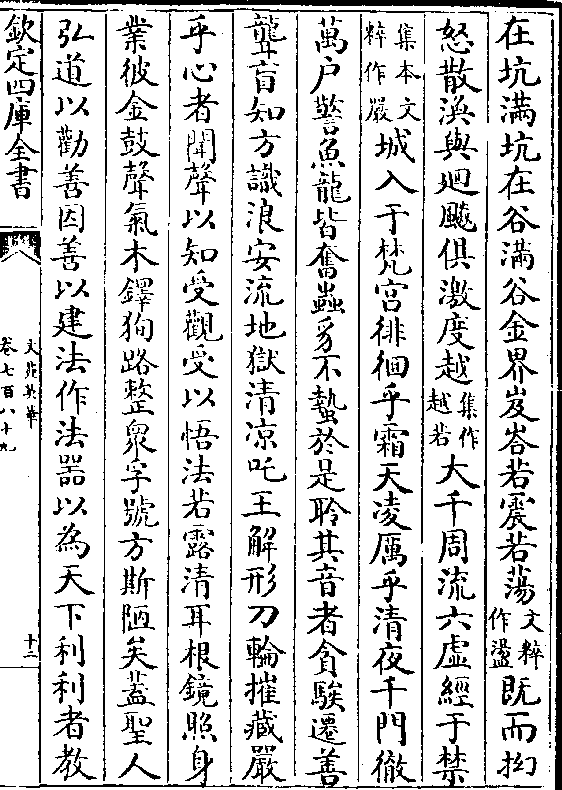 在坑滿坑在谷滿谷金界岌峇若震若蕩文粹作盪既而抝
怒散渙與廻飈俱激度越集作越若大千周流六虛經于禁
集本文粹作嚴城入于梵宮徘徊乎霜天凌厲乎清夜千門徹
萬户警魚龍皆奮蟲豸不蟄於是聆其音者貪騃遷善
聾盲知方識浪安流地獄清凉吒王解形刀輪摧藏嚴
乎心者聞聲以知受觀受以悟法若露清耳根鏡照身
業彼金鼓聲氣木鐸狥路整衆字號方斯陋矣蓋聖人
弘道以勸善因善以建法作法器以為天下利利者教
欽定四庫全書
文苑英華
卷七百八十九
十二